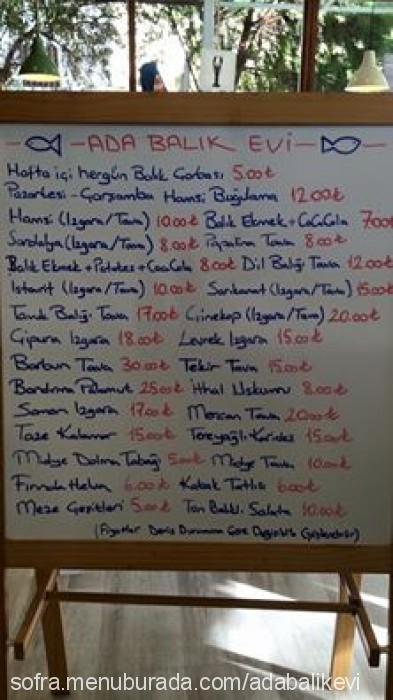 ADA BALIK EVİ
Hafta içi hergün Balık Çorbası 5.00₺
Pazartesi - Çarşamba Hamsi Buğulama 12.00₺
Hamsi (Izgara/Tava) 10.00₺ Balık Ekmek + CocaCola 7.00₺
Sardalya (Izgara/Tava) 8.00₺ Tava 8.00₺
Balık Ekmek + Patates + CocaCola 8.00₺ Dil Balığı Tava 12.00₺
İstavrit (Izgara/Tava) 10.00₺ Sarıkanat (Izgara/Tava) 15.00₺
Tavuk Balığı Tava 17.00₺ Çinekop (Izgara/Tava) 20.00₺
Çipura Izgara 18.00₺ Levrek Izgara 15.00₺
Barbun Tava 30.00₺ Tekir Tava 15.00₺
Bandırma Palamut 25.00₺ İthal Uskumru 8.00₺
Somon Izgara 17.00₺ Mercan Tava 20.00₺
Taze Kalamar 15.00₺ Tereyağlı Karides 15.00₺
Midye Dolma Tabağı 5.00₺ Midye Tava 10.00₺
Fırında Helva 6.00₺ Kabak Tatlısı 6.00₺
Meze Çeşitleri 5.00₺ Ton Balıklı Salata 10.00₺
(Fiyatlar Deniz Durumuna Göre Değişiklik Gösterebilir)
sofra.menuburada.com/adabalikevi